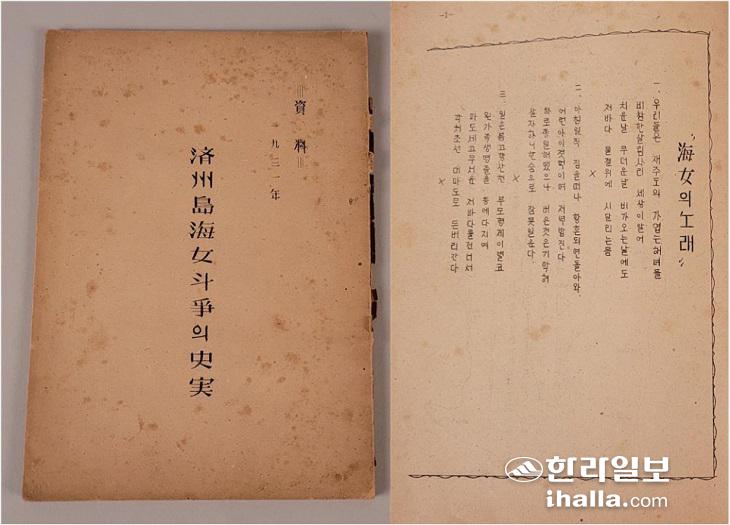 資料
一九三一年
済州島海女斗爭의史実
-1-
"海女의노래"
一、우리들은 제주도의 가엽는해녀들
비참한살림사리 세상이알어
치운날 무더운날 비가오는날에도
저바다 물결위에 시달리는몸
×
二、아침일즉 집을떠나 황혼되면돌아와
어린아이젓먹이며 저녁밥진다
하로종일해봤으나 버은것은기막혀
살자하니한숨으로 잠못일운다
×
三、일은봄고향산천 부모형제이별코
왼가족생명줄을 등에다지여
파도세고무서운 저바다를건너서
각처조선 대마도로 돈벌러간다
×
한라일보
ihalla.com